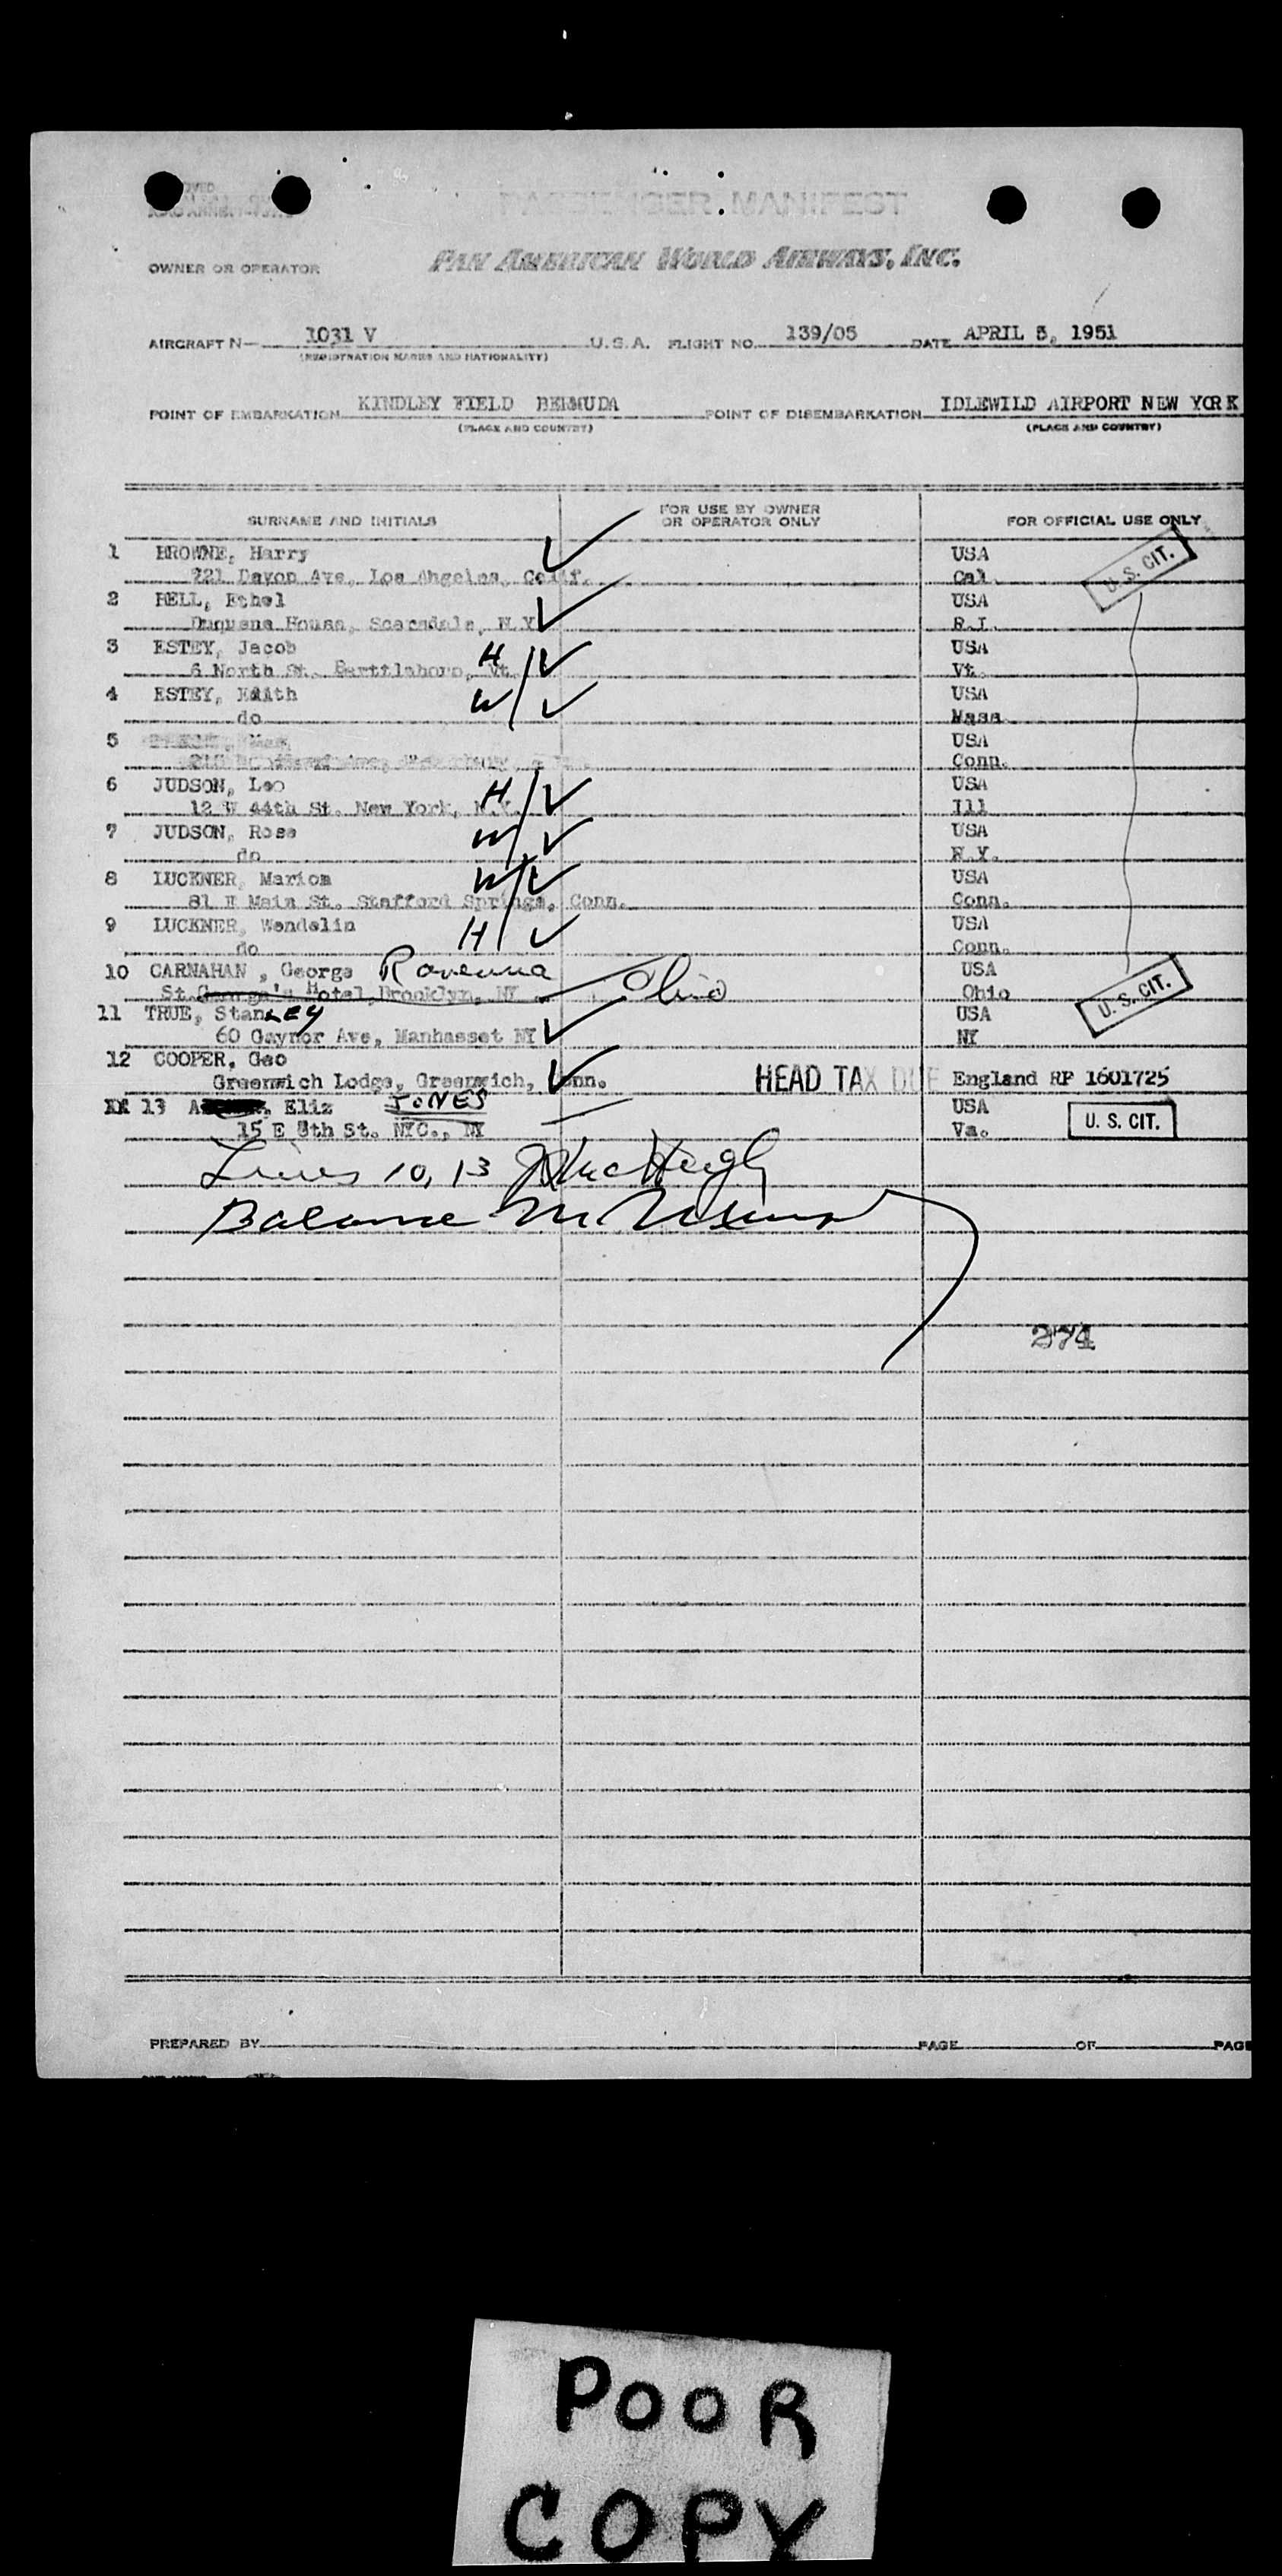 PASSENGER MANIFEST
OWNER OR OPERATOR PAN AMERICAN WORLD AIRWAYS, INC.
AIRCRAFT N— 1031 V U.S.A. FLIGHT NO. 139/05 DATE APRIL 5, 1951
(REGISTRATION MARKS AND NATIONALITY)
POINT OF EMBARKATION KINDLEY FIELD BERMUDA POINT OF DISEMBARKATION IDLEWILD AIRPORT NEW YORK
(PLACE AND COUNTRY) (PLACE AND COUNTRY)
SURNAME AND INITIALS FOR USE BY OWNER OR OPERATOR ONLY FOR OFFICIAL USE ONLY
1 BROWNE, Harry USA U. S. CIT.
721 Devon Ave, Los Angeles, Calif. Cal.
2 BELL, Ethel USA
House, Scarsdale, N.Y. R.I.
3 ESTEY, Jacob H USA
6 North St. Brattlaboro, Vt. Vt.
4 ESTEY, Edith W USA
do Mass.
5 USA
Conn.
6 JUDSON, Leo H USA
12 W 44th St. New York, N.Y. Ill
7 JUDSON, Rose W USA
do N.Y.
8 LUCKNER, Marion W USA
81 Main St. Stafford Springs, Conn. Conn.
9 LUCKNER, Wendelin H USA
do Conn.
10 CARNAHAN, George Ravenna Ohio USA
St. George's Hotel, Brooklyn, NY Ohio U. S. CIT.
11 TRUE, StanLEY USA
60 Gaynor Ave, Manhasset NY NY
12 COOPER, Geo
Greenwich Lodge, Greenwich, Conn. HEAD TAX DUE England RP 1601725
13 Eliz JONES USA
15 E 8th St. NYC., NY Va. U. S. CIT.
Lines 10, 13
Balance
274
PREPARED BY PAGE OF PAGE
POOR
COPY